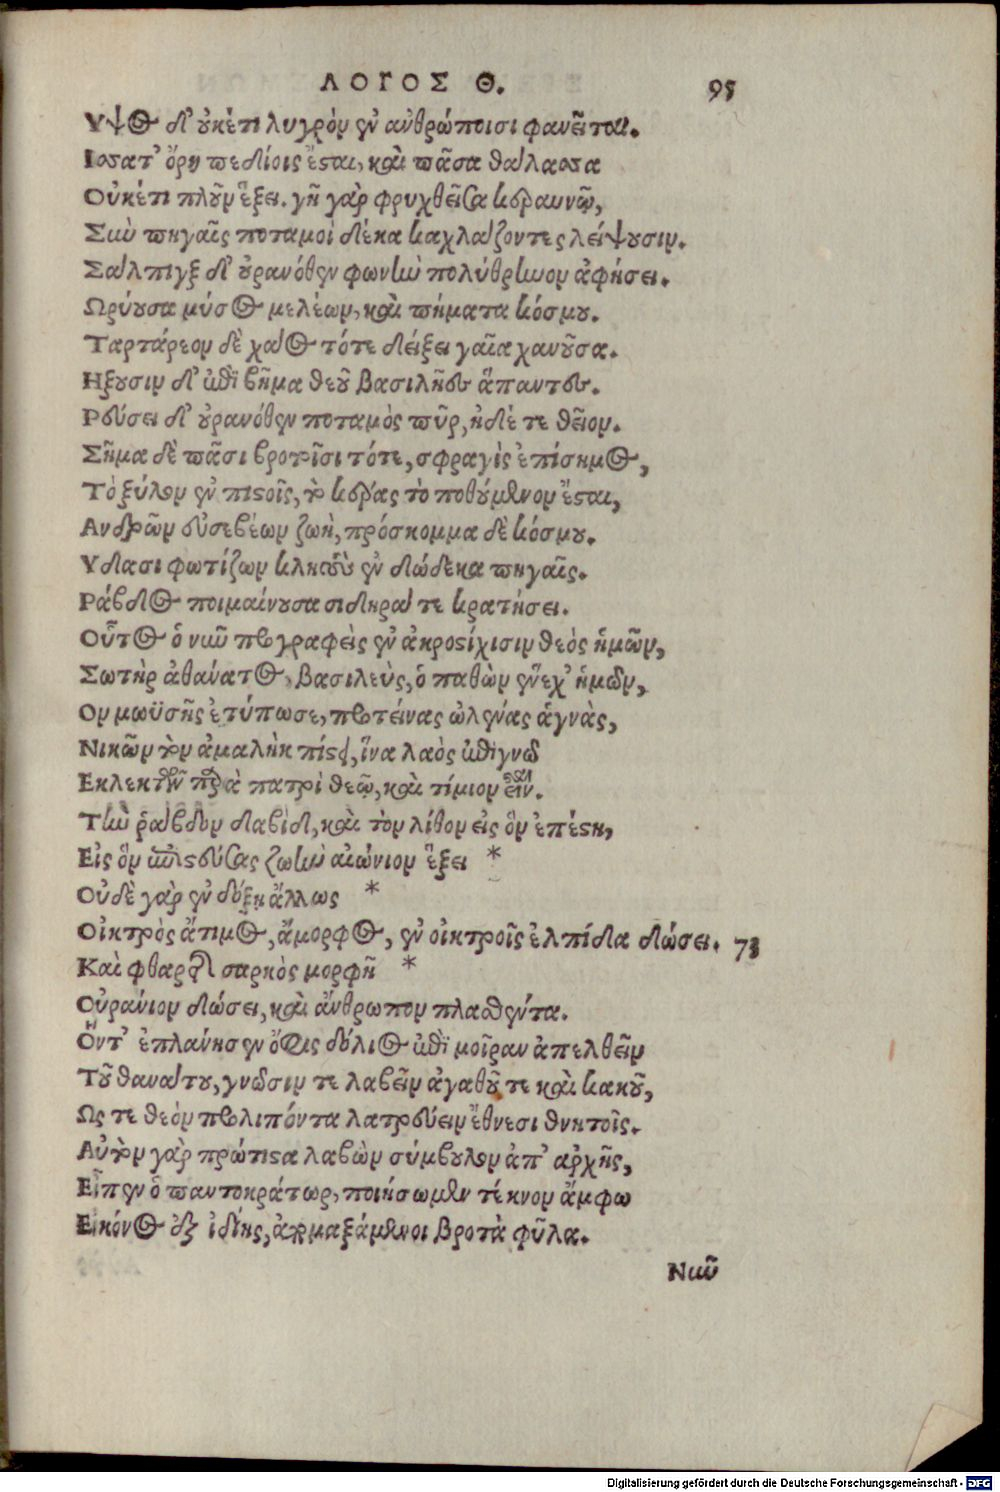 ΛΟΓΟΣ Θ. 95
Υψος δ' οὐκέτι λυγρὸν ἐν ἀνθρώποισι φανεῖται.
Ισσατ' ὄρη πεδίοις ἔσται, καὶ πᾶσα θάλασσα
Οὐκέτι πλοῦν ἕξει. γῆ γὰρ φρυχθεῖσα κεραυνῷ,
Σὺν πηγαῖς ποταμοὶ δὲ κα καχλάζοντες λείψουσιν.
Σάλπιγξ δ' οὐρανόθεν φωνὴν πολύθρηνον ἀφήσει.
Ωρύουσα μύσος μελέων, καὶ πήματα κόσμου.
Ταρτάρεον δὲ χάος τότε δείξει γαῖα χανοῦσα.
Ηξουσιν δ' ἐπὶ βῆμα θεοῦ βασιλῆος ἅπαντες.
Ρεύσει δ' οὐρανόθεν ποταμὸς πῦρ, ἠδέ τε θεῖον.
Σῆμα δὲ πᾶσι βροτοῖσι τότε, σφραγὶς ἐπίσημος,
Τὸ ξύλον ἐν πιστοῖς, τὸ κέρας τὸ ποθούμενον ἔσται,
Ανδρῶν εὐσεβέων ζωὴ, πρόσκομμα δὲ κόσμου.
Υδασι φωτίζων κλητοὺς ἐν δώδεκα πηγαῖς.
Ράβδος ποιμαίνουσα σιδηρά τε κρατήσει.
Οὗτος ὁ νῦν προγραφεὶς ἐν ἀκροστίχισιν θεὸς ἡμῶν,
Σωτὴρ ἀθάνατος, βασιλεὺς, ὁ παθὼν ἕνεχ' ἡμῶν,
Ον μωϋσῆς ἐτύπωσε, προτείνας ὠλένας ἁγνὰς,
Νικῶν τὸν ἀμαλὴκ πίστει, ἵνα λαὸς ἐπιγνῷ
Εκλεκτὸν παρὰ πατρὶ θεῷ, καὶ τίμιον εἶναι.
Τὴν ῥάβδον δαβὶδ, καὶ τὸν λίθον εἰς ὃν ἐπέστη,
Εἰς ὃν πιστεύσας ζωὴν αἰώνιον ἕξει *
Οὐδὲ γὰρ ἐν δόξῃ ἄλλως *
Οἰκτρὸς ἄτιμος, ἄμορφος, ἐν οἰκτροῖς ἐλπίδα δώσει. 73
Καὶ φθαρτῇ σαρκὸς μορφῇ *
Οὐράνιον δώσει, καὶ ἄνθρωπον πλασθέντα.
Ὅντ' ἐπλάνησεν ὄφις δόλιος ἐπὶ μοῖραν ἀπελθεῖν
Τοῦ θανάτου, γνῶσιν τε λαβεῖν ἀγαθοῦ τε καὶ κακοῦ,
Ως τε θεὸν προλιπόντα λατρεύειν ἔθνεσι θνητοῖς.
Αὐτὸν γὰρ πρώτιστα λαβὼν σύμβουλον ἀπ' ἀρχῆς,
Εἶπεν ὁ παντοκράτωρ, ποιήσωμεν τέκνον ἄμφω
Εἰκόνος ἐξ ἰδίης, ἀπομαξάμενοι βροτὰ φῦλα.
Νῦν
Digitalisierung gefördert durch die Deutsche Forschungsgemeinschaft - DFG